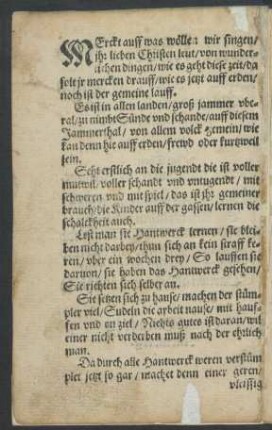 MErckt auff was wölle wir singen/
ihr lieben Christen leut/ von wunder-
lichen dingen/ wie es geht diese zeit/ da
solt jr mercken drauff/ wie es jetzt auff erden/
noch ist der gemeine lauff.
Es ist in allen landen/ groß jammer vbe-
ral/ zu nimbt Sünde vnd schande/ auff diesem
Jammerthal/ von allem volck gemein/ wie
kan denn hie auff erden/ frewd oder kurtzweil
sein.
Seht erstlich an die jugendt die ist voller
mutwil/ voller schandt vnd vntugendt/ mit
schweren vnd mit spiel/ das ist ihr gemeiner
brauch/ die Kinder auff der gassen/ lernen die
schalckheit auch.
Lest man sie Hantwerck lernen/ sie blei-
ben nicht darbey/ thun sich an kein straff ke-
ren/ vber ein wochen drey/ So lauffen sie
daruon/ sie haben das Hantwerck gesehen/
Sie richten sich selber an.
Sie setzen sich zu hause/ machen der stüm-
pler viel/ Sudeln die arbeit nause/ mit hauf-
fen vnd on ziel/ Nichts gutes ist daran/ wil
einer nicht verderben muß nach der ehrlich
man.
Da durch alle Hantwerck weren verstüm
plet jetzt so gar/ machet denn einer geren/
vleissig